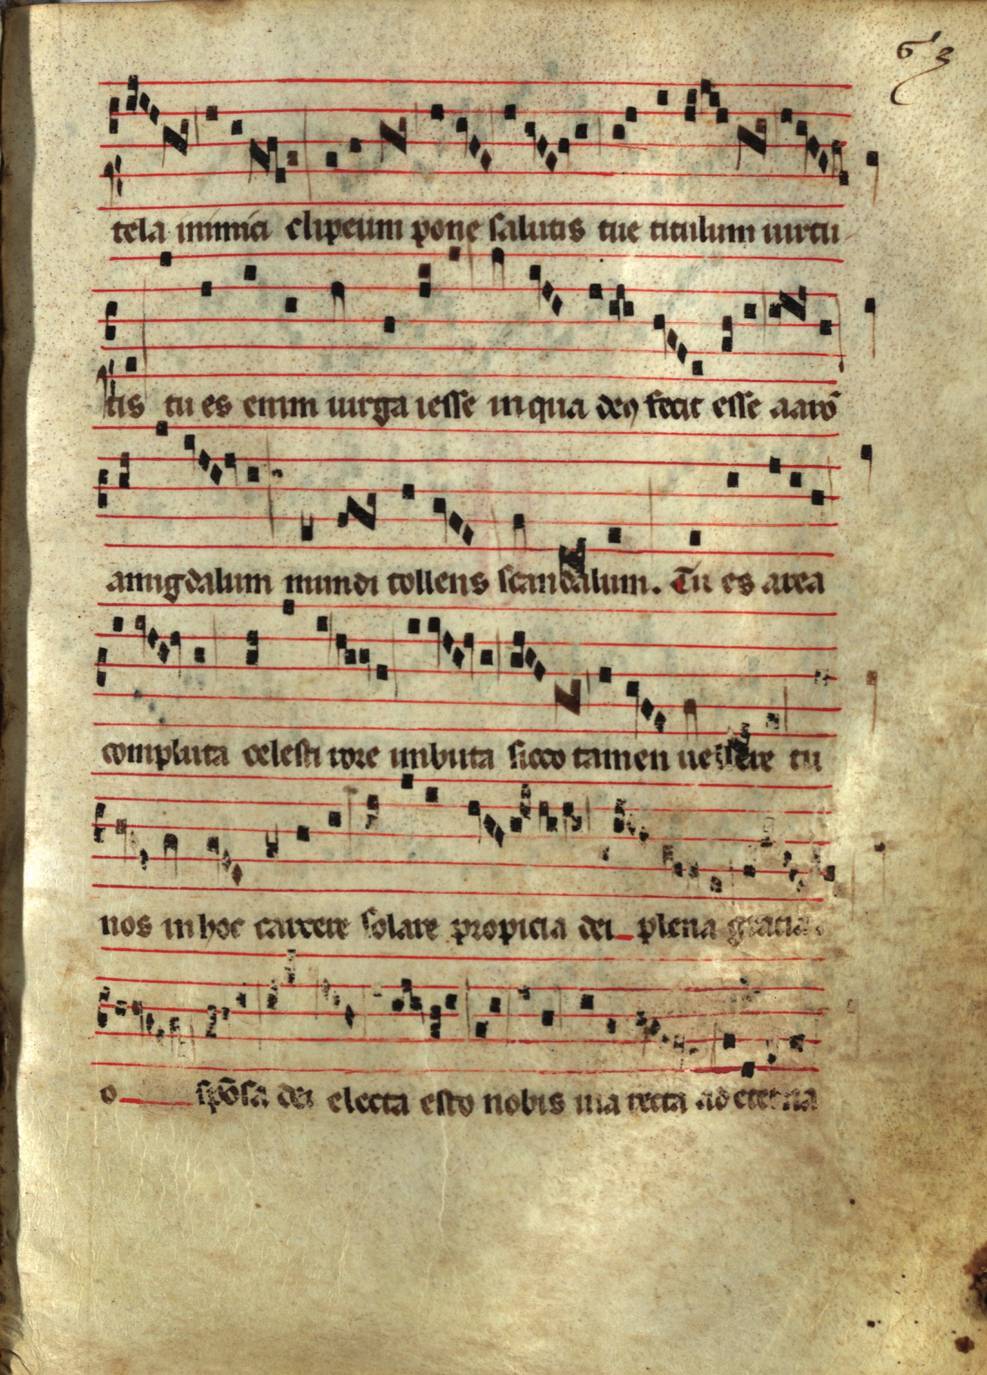 63
tela inimici clipeum pone salutis tue titulum uirtu
tis tu es enim uirga iesse in qua deꝰ fecit esse aarō
amigdalum mundi tollens scandalum. Tu es area
compluta celesti rore imbuta sicco tamen uellere tu
nos in hoc carcere solare propicia dei plena gracia
o spōsa dei electa esto nobis uia recta ad eterna